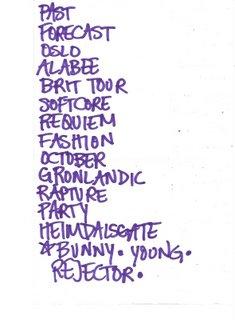 PAST
FORECAST
OSLO
ALABEE
BRIT TOUR
SOFTCORE
REQUIEM
FASHION
OCTOBER
GRONLANDIC
RAPTURE
PARTY
HEIMDALSGATE
☆BUNNY. YOUNG.
REJECTOR.